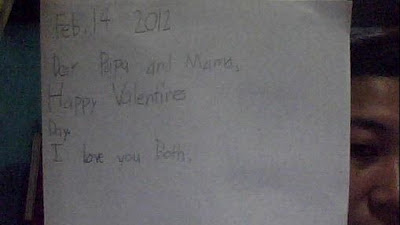 Feb. 14 2012
Dear Papa and Mama,
Happy Valentines
Day.
I love you Both.